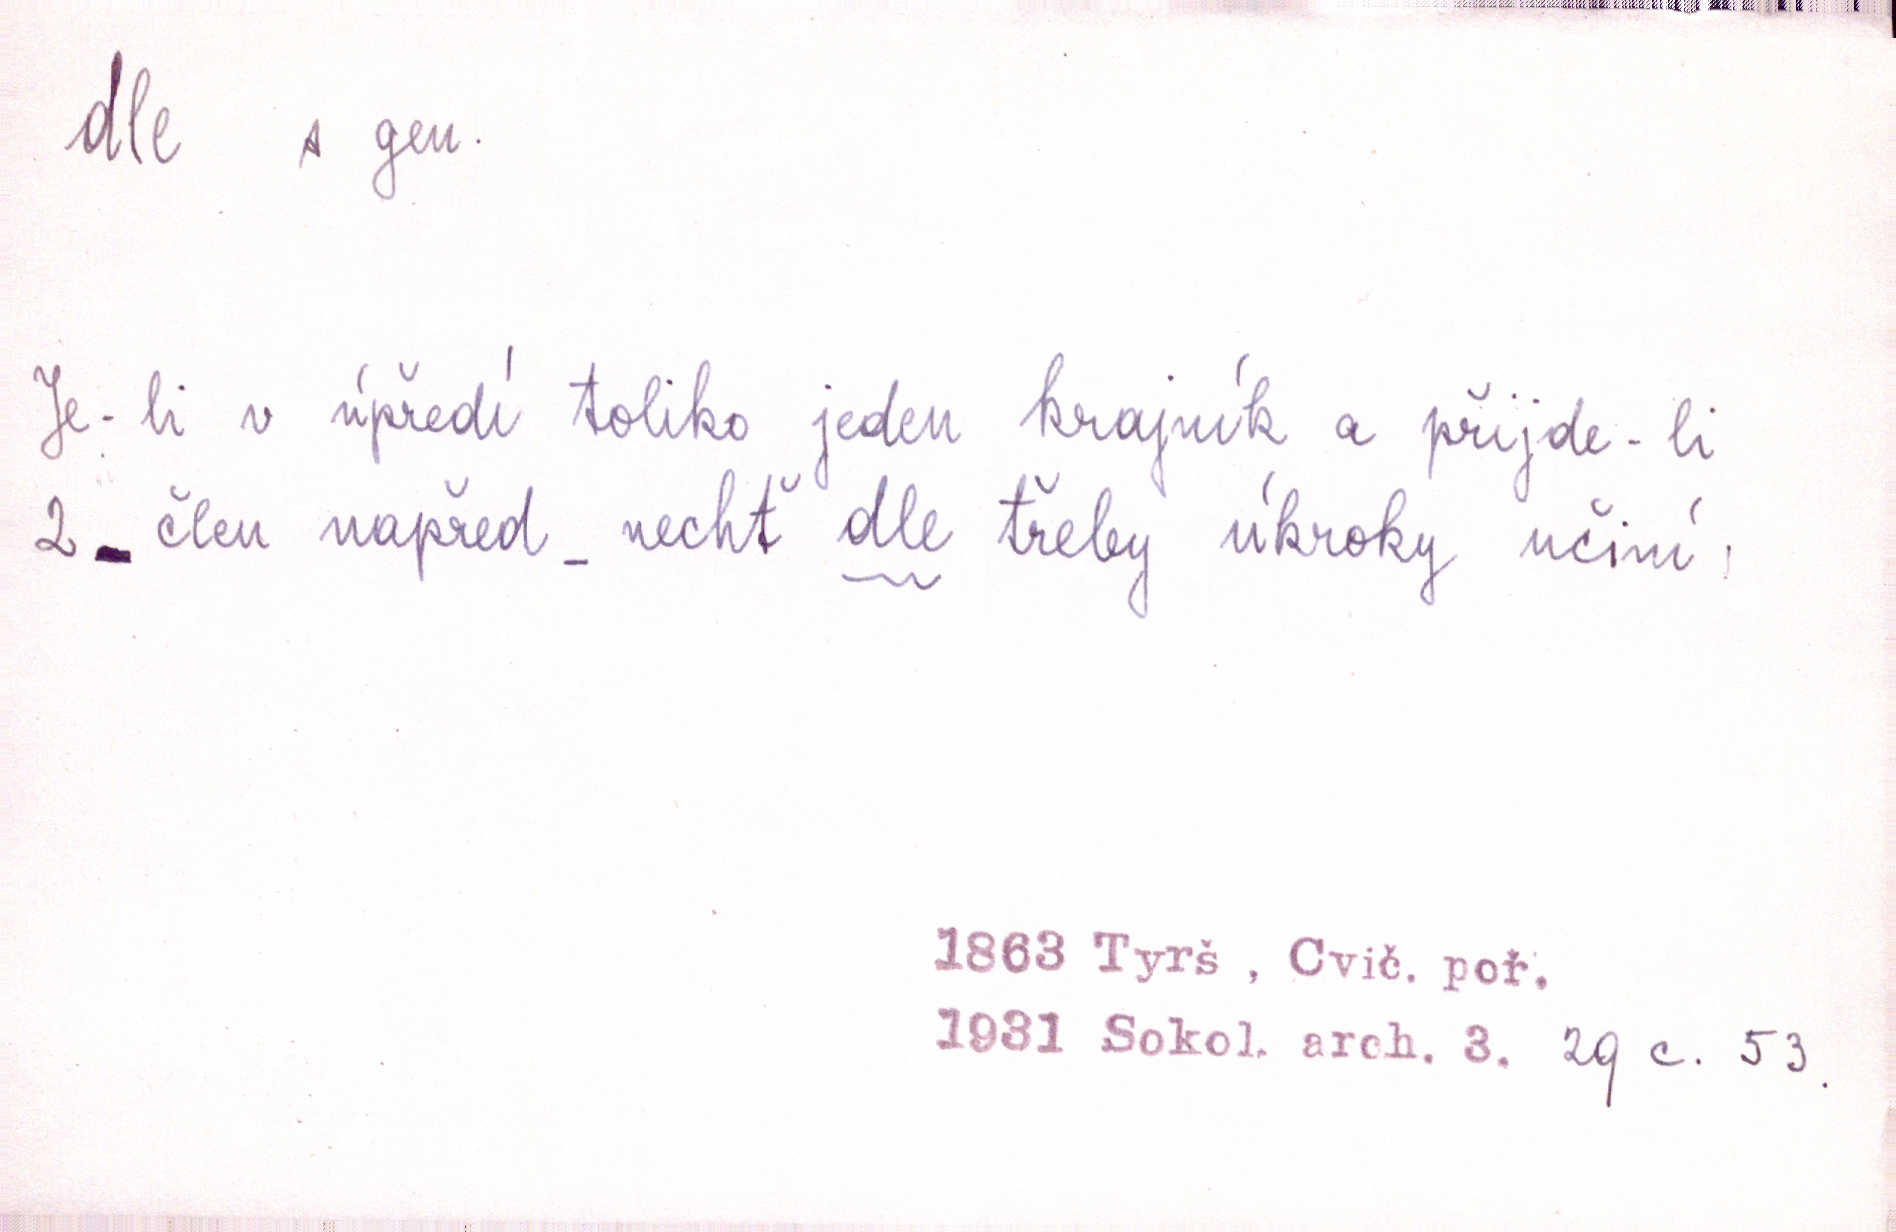 dle s gen.
Je-li v úpředí toliko jeden krajník a přijde-li
2_ člen napřed_ nechť dle třeby úkroky učiní;
1863 Tyrš, Cvič. poř.
1931 Sokol. arch. 3. 29 c. 53.